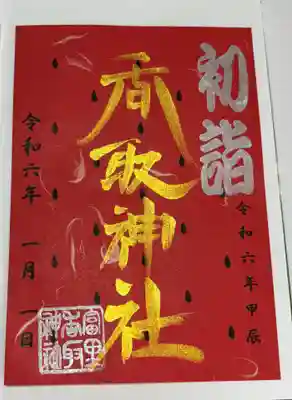 初詣
令和六年甲辰
香取神社
富里
香取
神社
令和六年 一月 一日